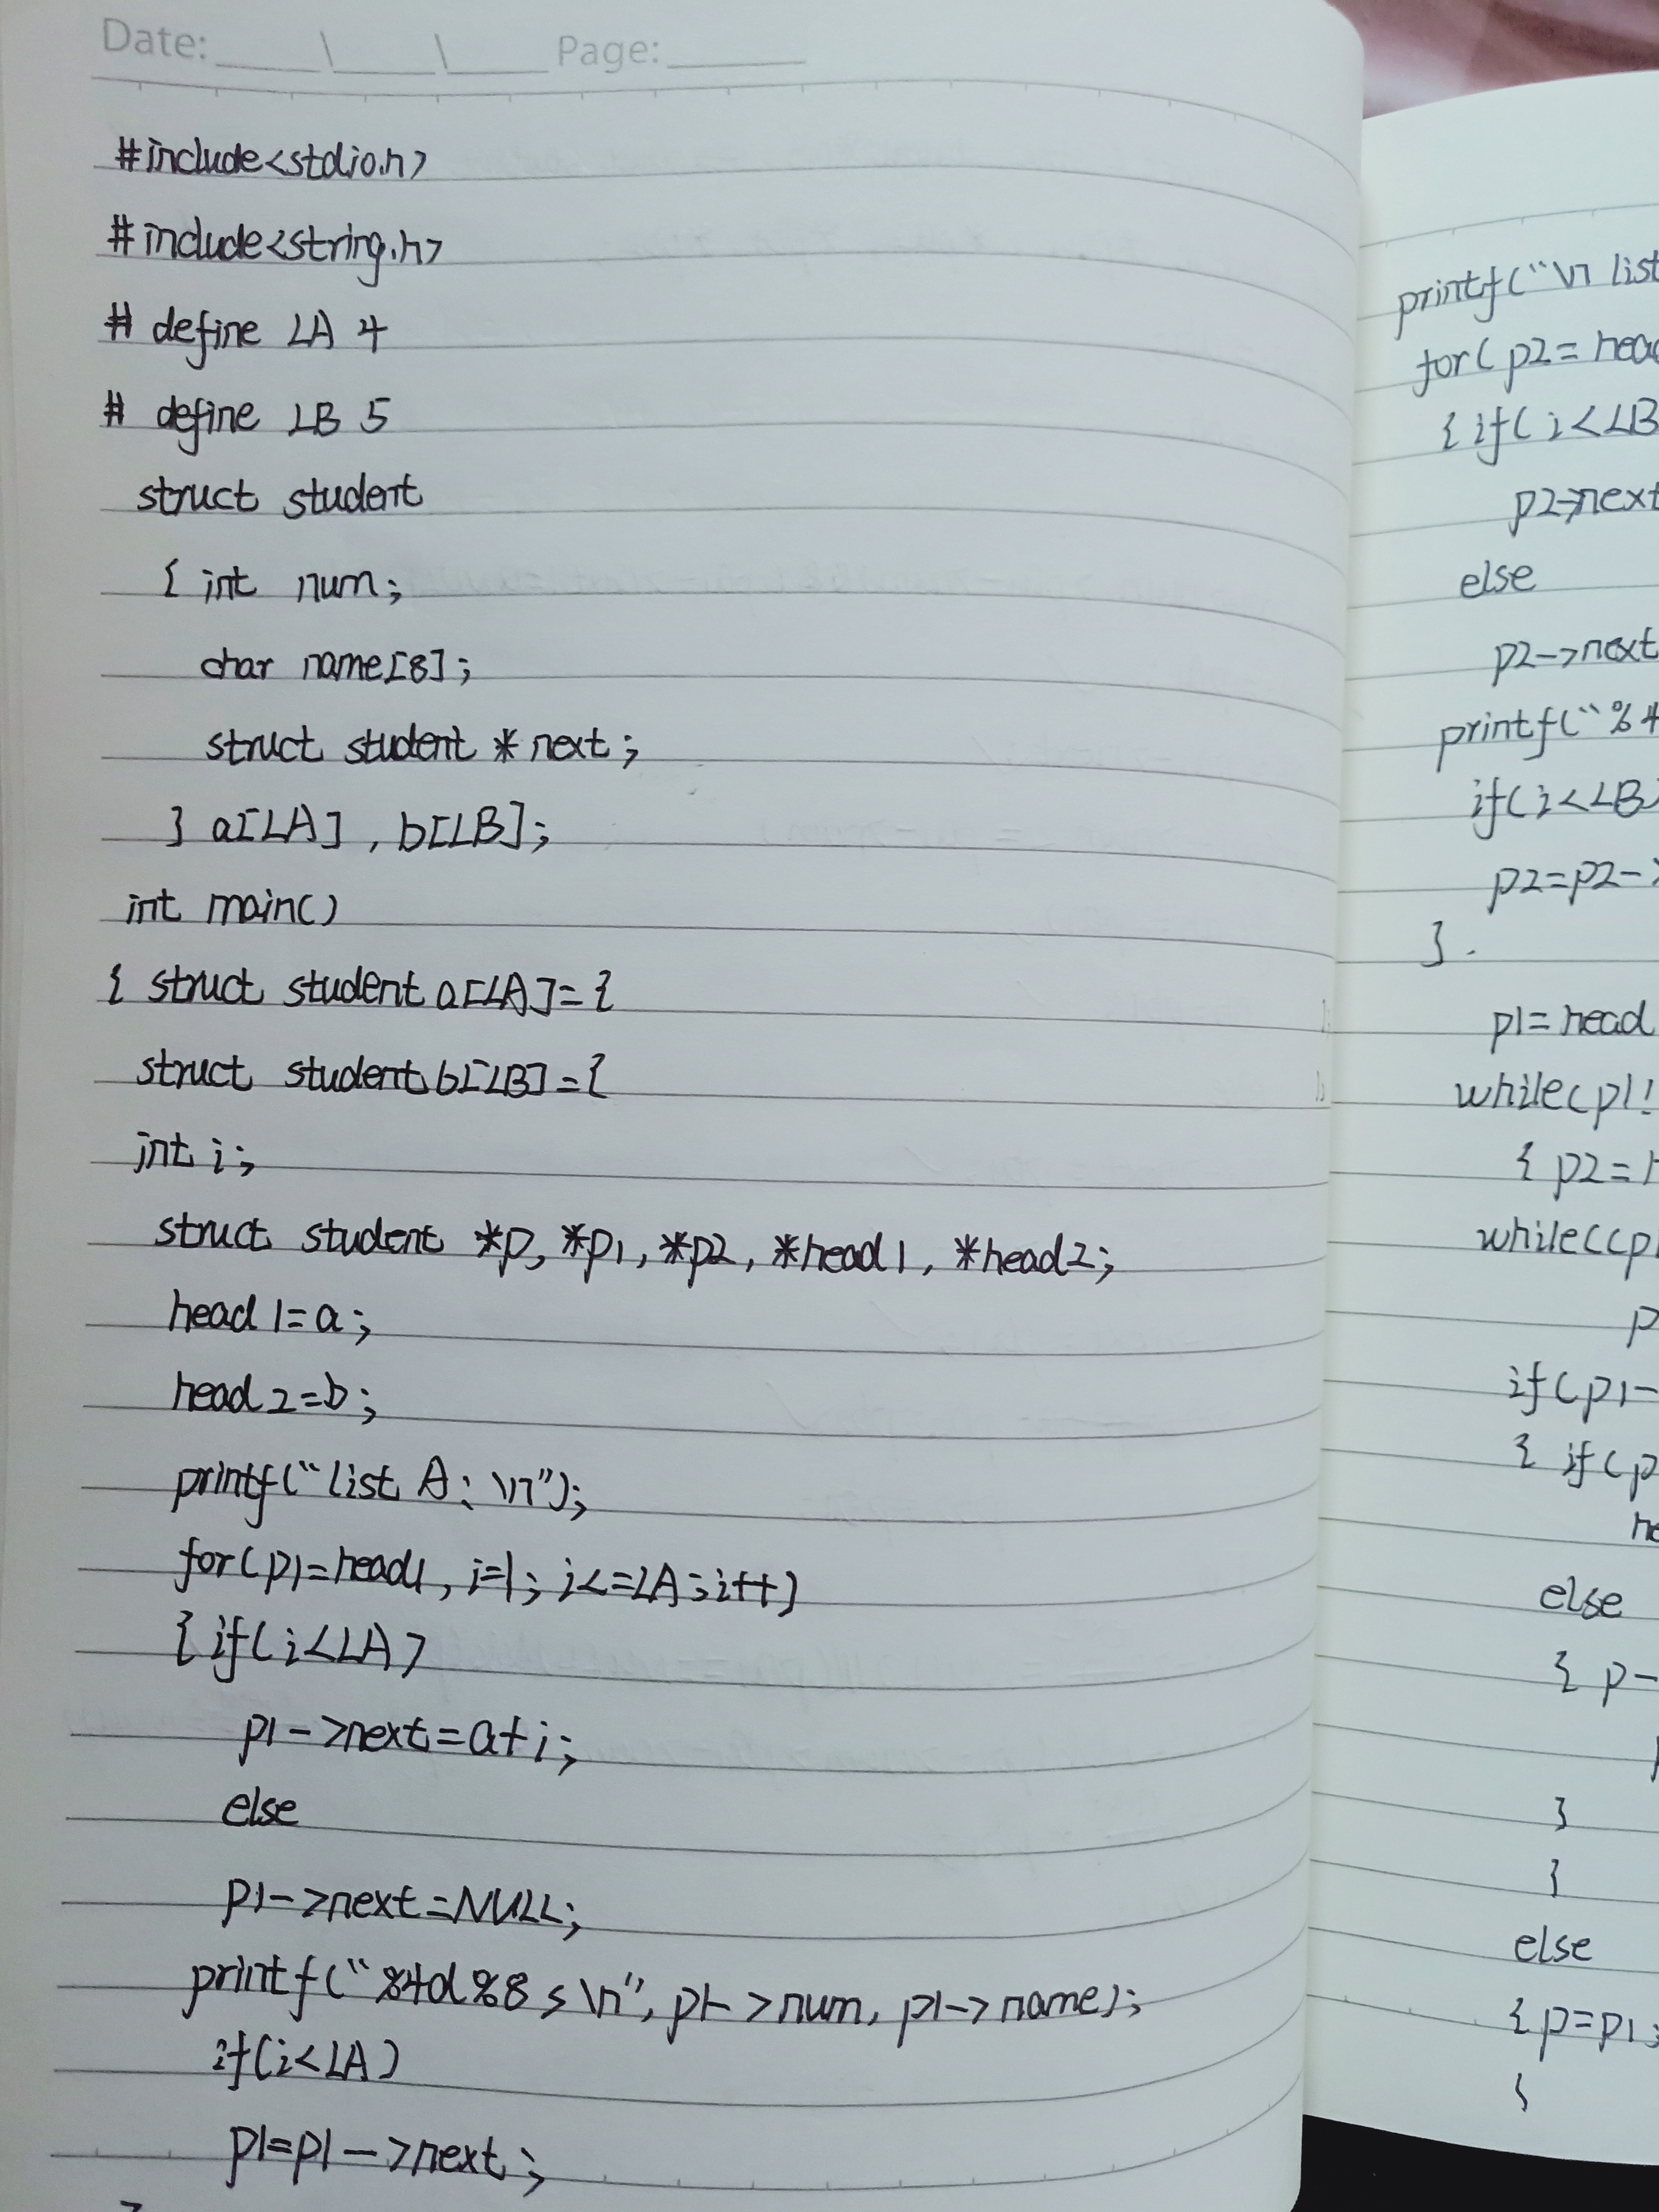 Date: \ \ Page:
#include<stdio.h>
#include<string.h>
# define LA 4
# define LB 5
struct student
{ int num;
char name[8];
struct student * next;
} a[LA], b[LB];
int main()
{ struct student a[LA]={
struct student b[LB]={
int i;
struct student *p, *p1, *p2, *head1, *head2;
head1=a;
head2=b;
printf("list A: \n");
for(p1=head1, i=1; i<=LA; i++)
{ if(i<LA)
p1->next=a+i;
else
p1->next=NULL;
printf("%4d%8s\n", p1->num, p1->name);
if(i<LA)
p1=p1->next;
}
printf("\n list
for(p2=head
{ if(i<LB
p2->next
else
p2->next
printf("%4
if(i<LB)
p2=p2->
}
p1=head
while(p1!
{ p2=h
while((p1
p
if(p1-
{ if(p
he
else
{ p-
}
}
else
{p=p1;
}